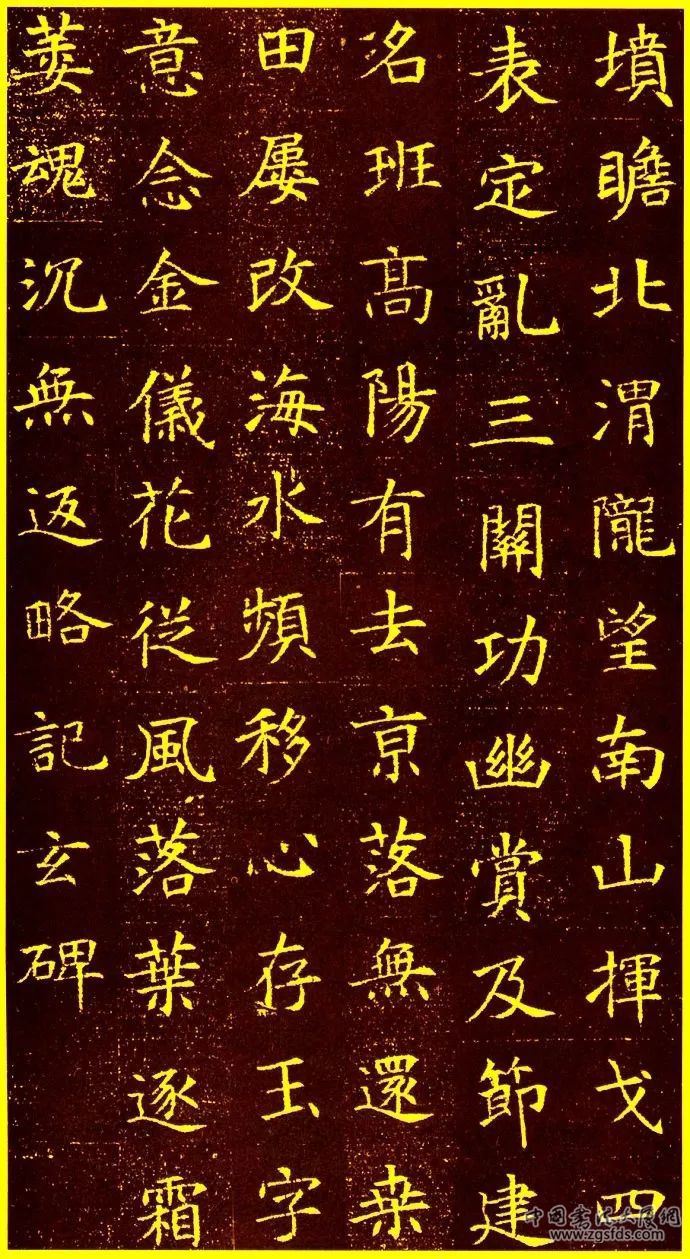 墳瞻北渭隴望南山揮戈四
表定亂三關功幽賞及節建
洺班髙陽有去亰落無還桒
田屢改海水頻移心存玉字
意念金儀花從風落葉逐霜
萎魂沉無返略記玄碑
www.zgsfds.com